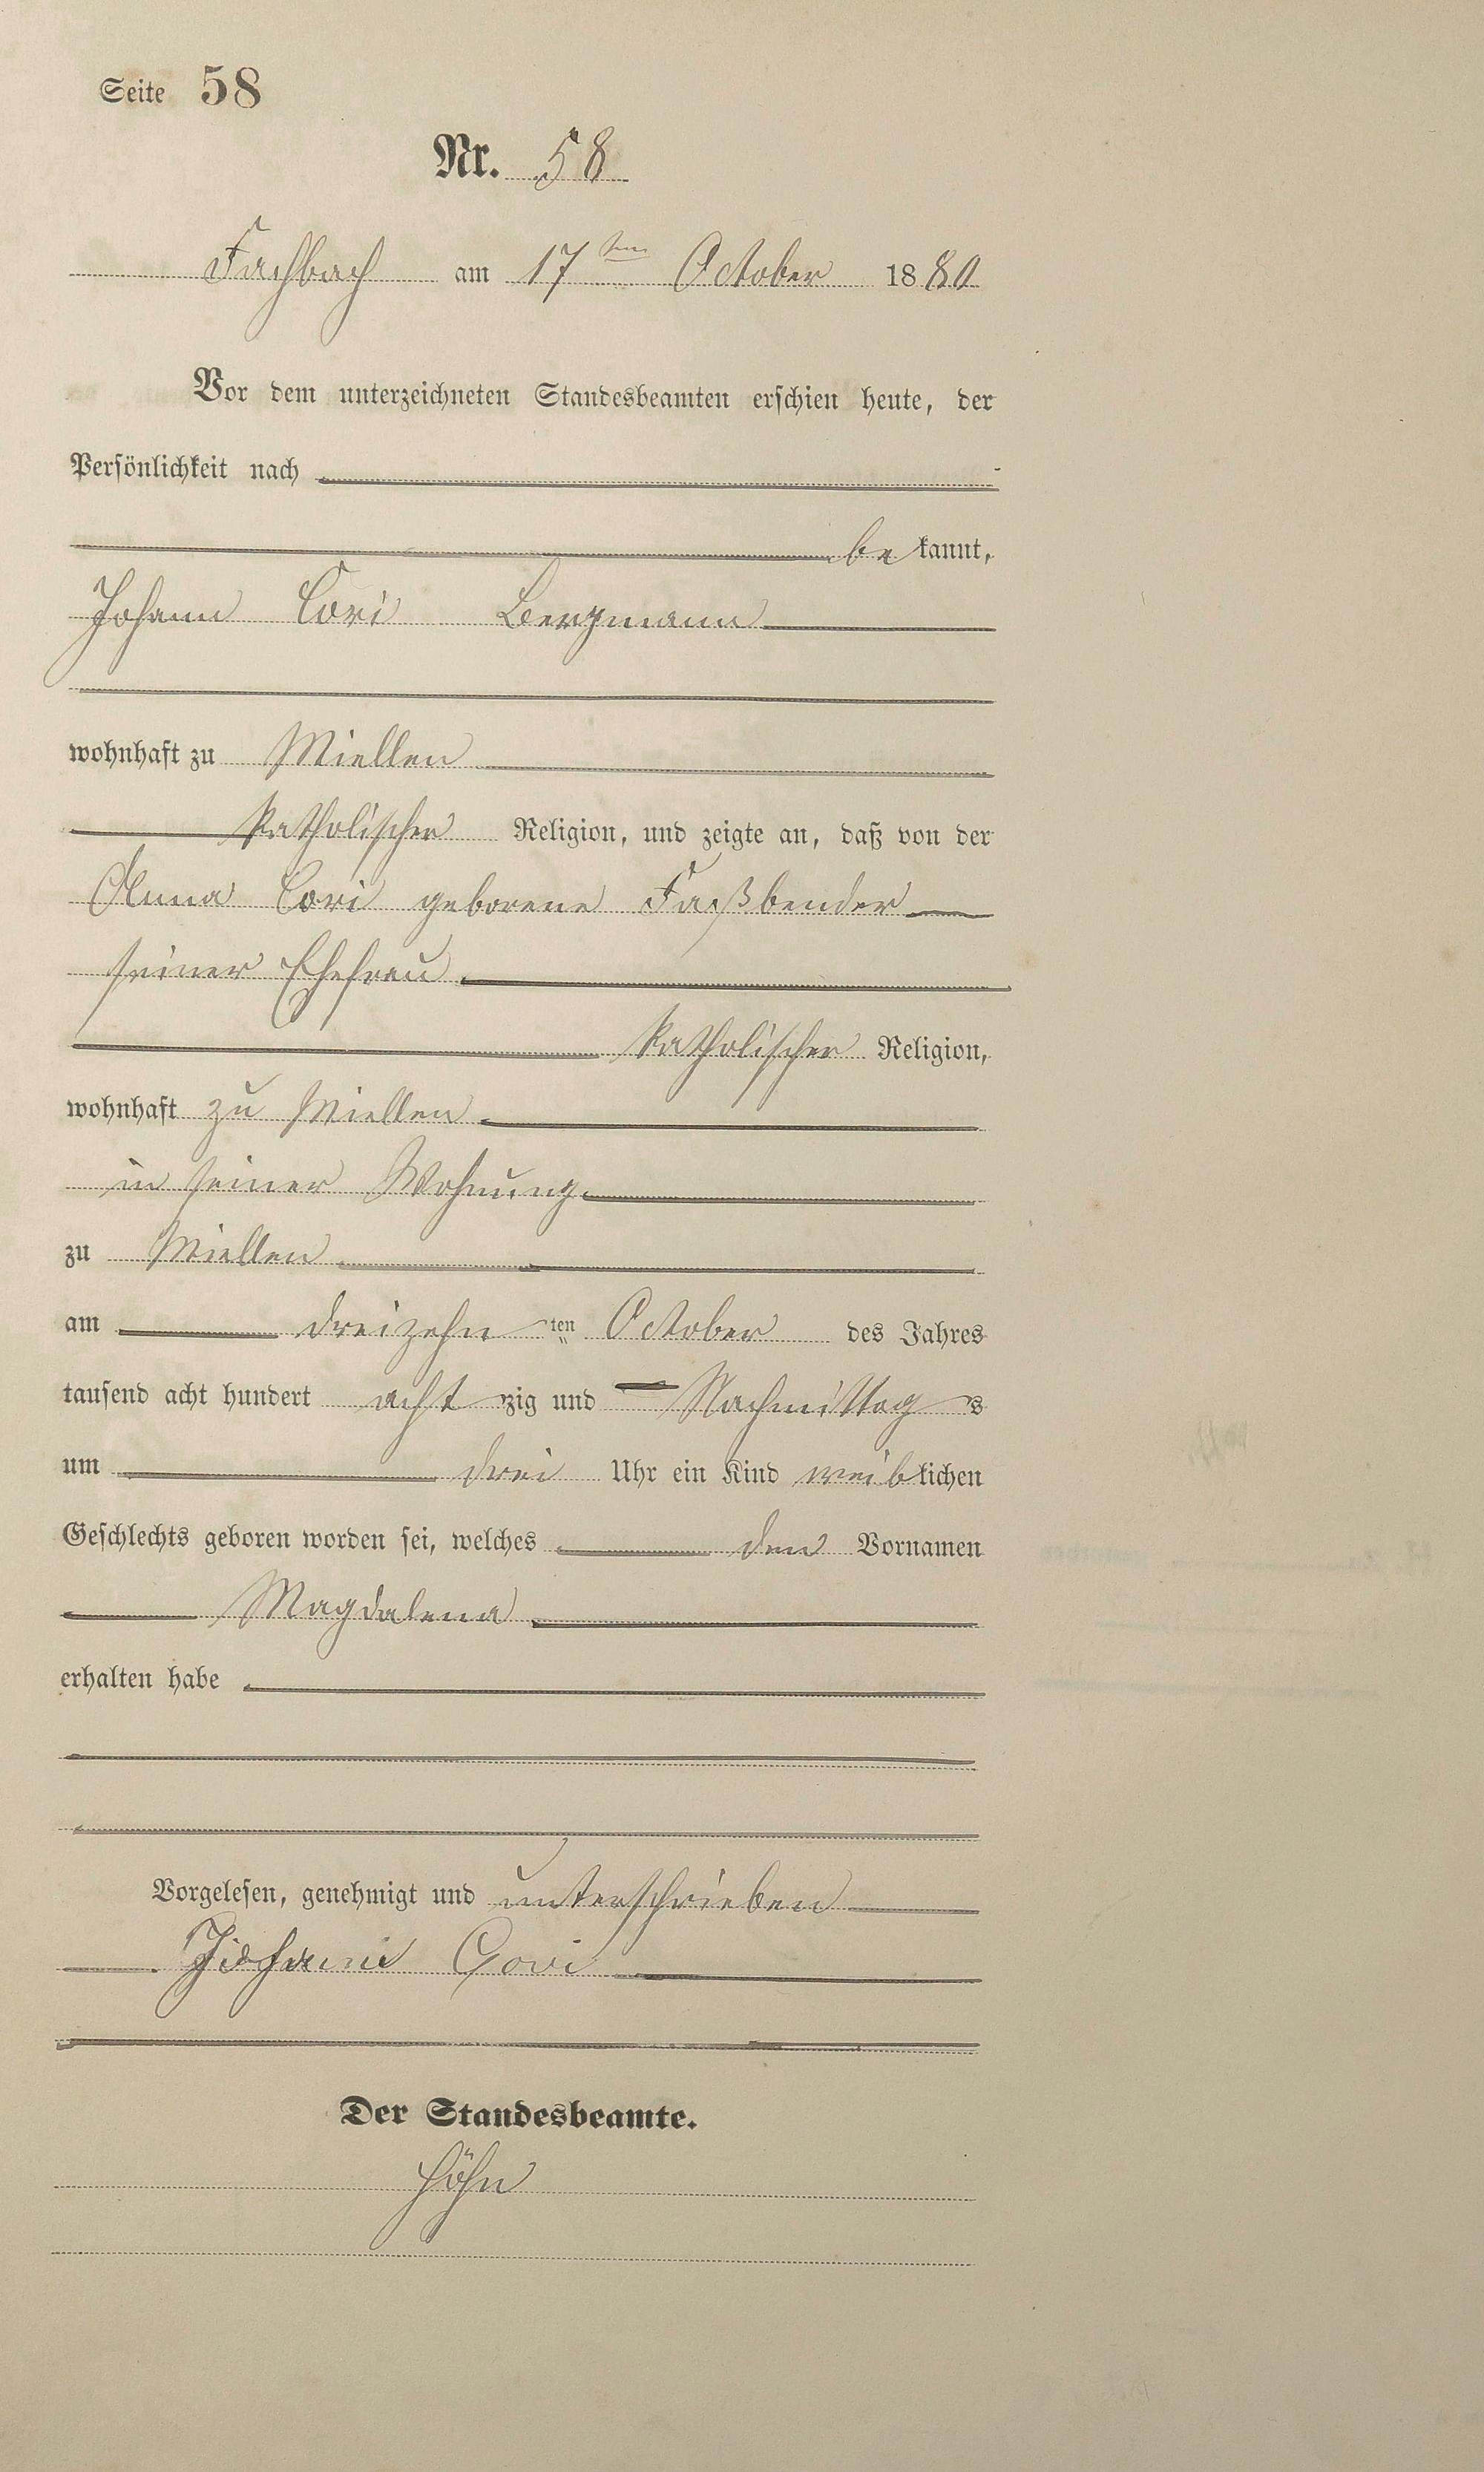 Seite 58
Nr. 58
Fachbach am 17ten October 1880
Vor dem unterzeichneten Standesbeamten erschien heute, der
Persönlichkeit nach
bekannt,
Johann Cori Bergmann
wohnhaft zu Miellen
katholischer Religion, und zeigte an, daß von der
Anna Cori geborene Faßbender
seiner Ehefrau
katholischer Religion,
wohnhaft zu Miellen
in seiner Wohnung
zu Miellen
am dreizehnten October des Jahres
tausend acht hundert achtzig und Nachmittags
um drei Uhr ein Kind weiblichen
Geschlechts geboren worden sei, welches den Vornamen
Magdalena
erhalten habe
Vorgelesen, genehmigt und unterschrieben
Johann Cori
Der Standesbeamte.
Höhn